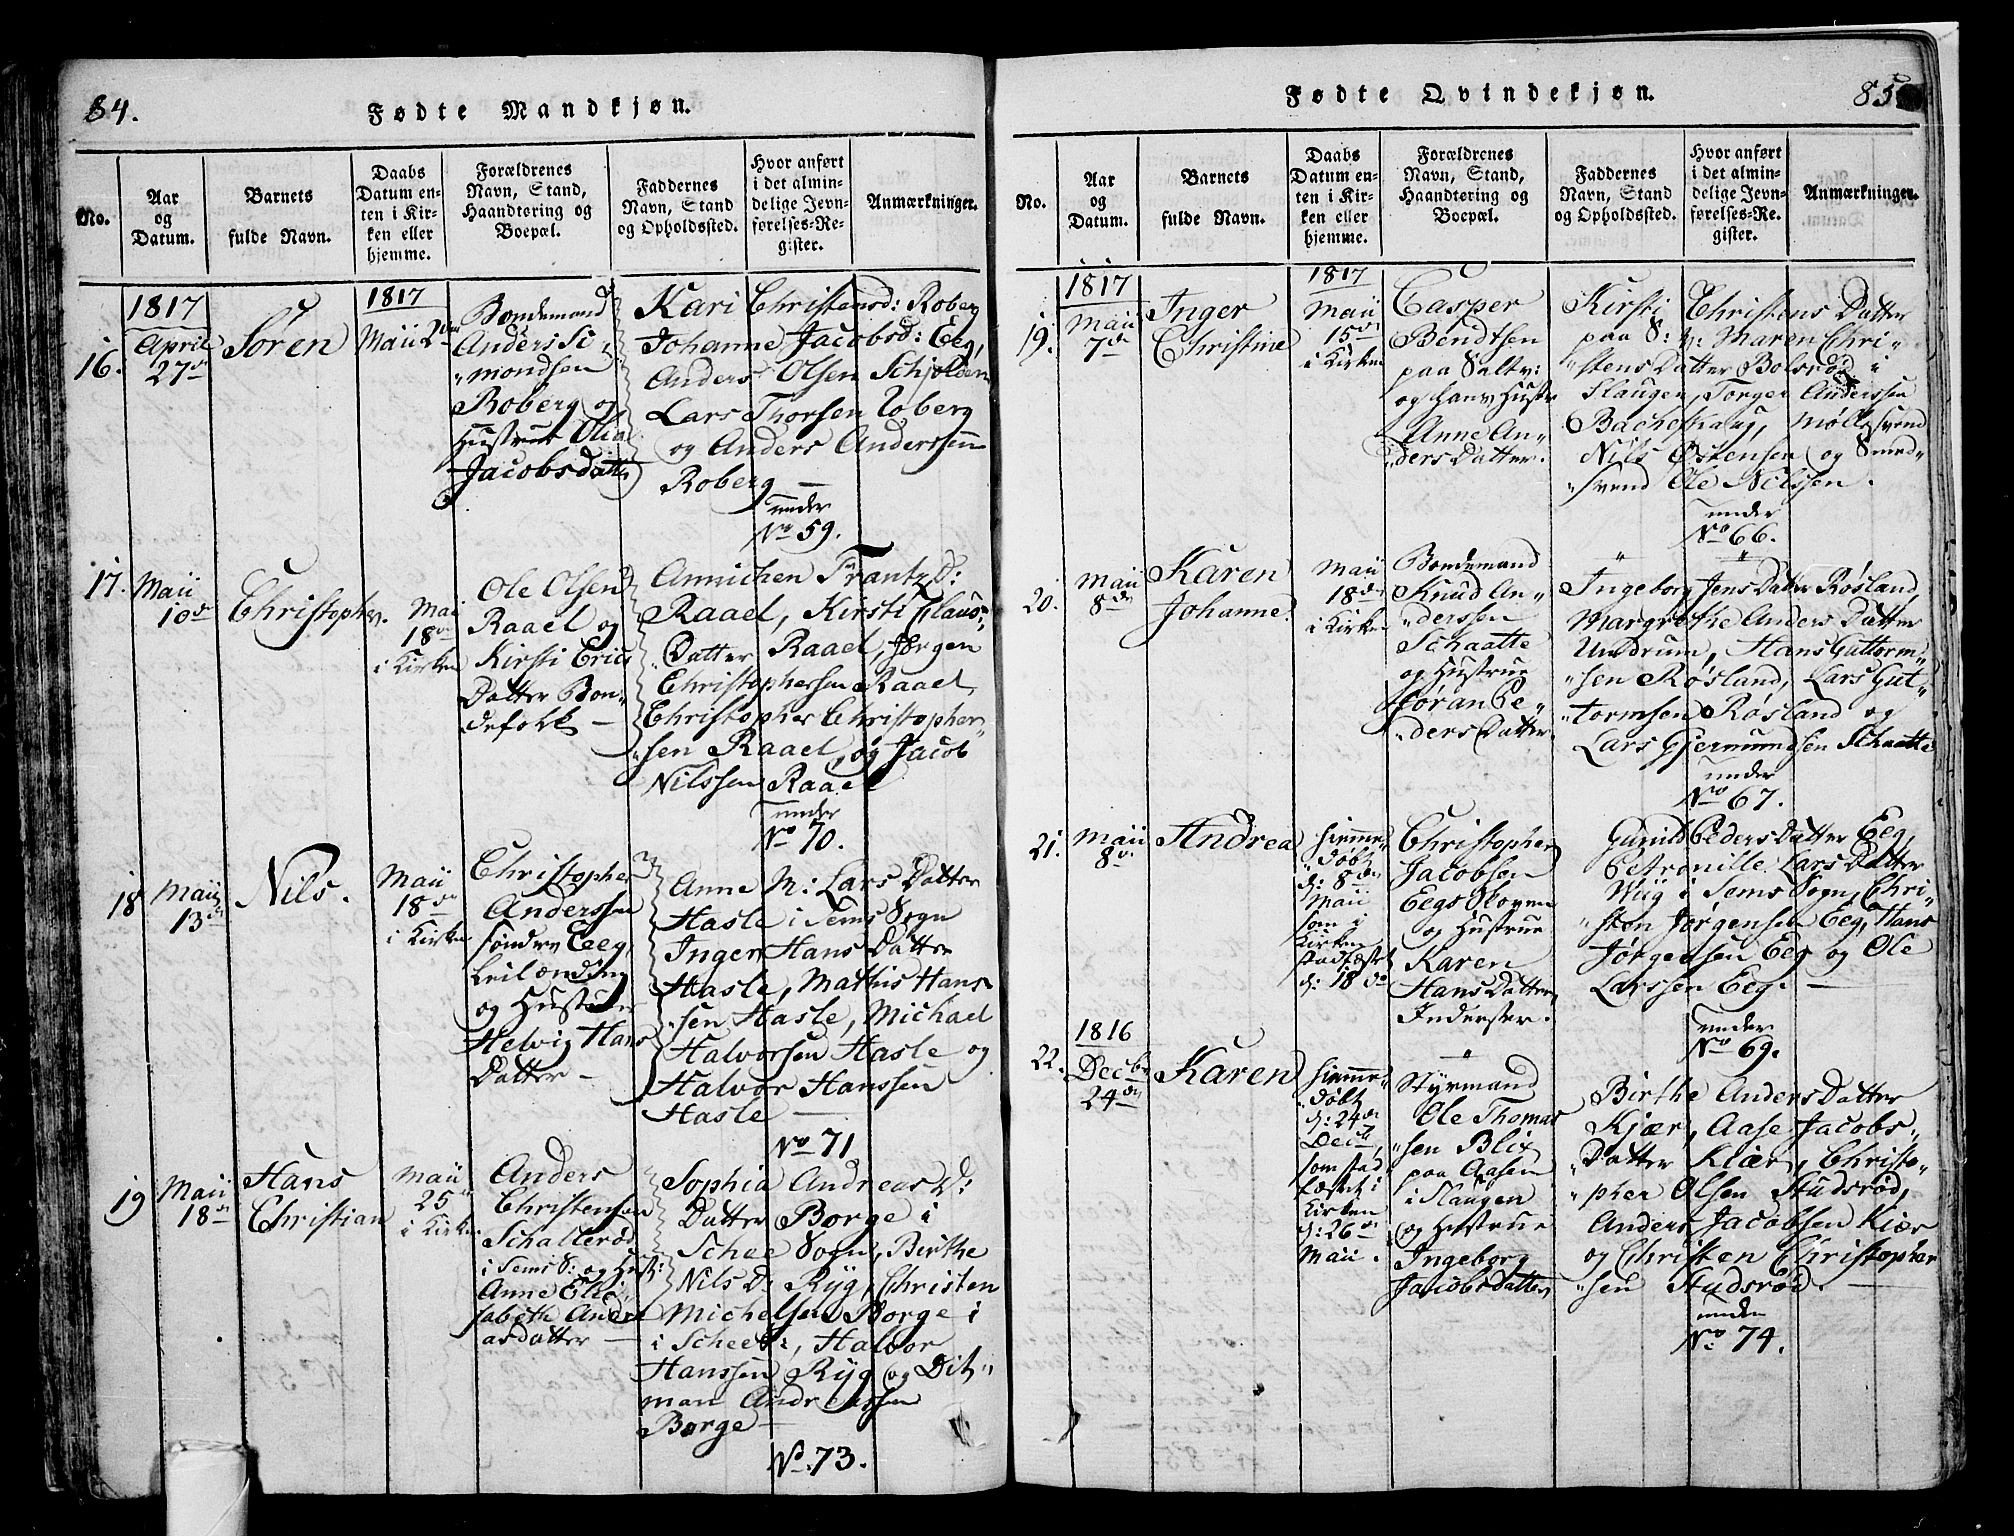 84.
Fødte Mandkjøn.
No.
Aar
og
Datum.
Barnets
fulde Navn.
Daabs
Datum en-
ten i Kir-
ken eller
hjemme.
Forældrenes
Navn, Stand,
Haandtering og
Boepæl.
Faddernes
Navn, Stand
og Opholdssted.
Hvor anført
i det almin-
delige Jevn-
førelses-Re-
gister.
Anmærkninger.
16.
1817
April
27de
Søren
1817
Maii 2den
Bondemand
Anders Si„
„mondsen
Roberg og
Hustrue Olia
Jacobsdatt
Kari Christensd: Roberg
Johanne Jacobsd: Eeg,
Anders Olsen Schjolden
Lars Thorsen Roberg
og Anders Anderssen
Roberg —
under
No 59.
17.
Maii
10de
Christopher.
Mai
18de
i Kirken
Ole Olsen
Raael og
Kirsti Erics
Datter Bon„
defolk —
Annichen Frantzd:
Raael, Kirsti Claus„
„Datter Raael, Jørgen
Christophersen Raael,
Christopher Christopher„
„sen Raael, og Jacob
Nilssen Raael
under
No 70.
18
Maii
13de
Nils.
Maii
18de
i Kirken
Christopher
Anderssen
søndre Eeg,
Leilænding
og Hustrue
Helvig Hans
Datter —
Anne M: Lars Datter
Hasle i Sems Sogn
Inger Hans Datter
Hasle, Mathis Hans„
„sen Hasle, Michael
Halvorsen Hasle og
Halvor Hanssen
Hasle —
No 71
19
Maii
18de
Hans
Christian
Maii
25
i Kirken
Anders
Christensen
Schallerød
i Sems S: og Hust:
Anne Eli„
sabeth Andre
asdatter —
Sophia Andreas D:
Datter Borge i
Schee Sogn, Birthe
Nils D: Ryg, Christen
Michelsen Borge i
i Schee S:, Halvor
Hanssen Ryg og Dit„
man Andreassen
Borge —
No. 73.
85
Fødte Qvindekjøn.
No.
Aar
og
Datum.
Barnets
fulde Navn.
Daabs
Datum en-
ten i Kir-
ken eller
hjemme.
Forældrenes
Navn, Stand,
Haandtering og
Boepæl.
Faddernes
Navn, Stand
og Opholdssted.
Hvor anført
i det almin-
delige Jevn-
førelses-Re-
gister.
Anmærkninger.
19.
1817
Maii
7de
Inger
Christine
1817
Maii
15de
i Kirken
Casper
Bendtsen
paa Saltv:
og hans Hustr
Anne An„
„ders Datter.
Kirsti Christens Datter
paa S: v: Maren Chri„
„stens Datter Bolsrød i
Slaugen, Torger Anderssen
Bacheskaug, Møllesvend
Nils Østensen og Smed„
„svend Ole Nilssen.
under
No 66.
20.
Maii
8de
Karen
Johanne.
Maii
18de
i Kirken
Bondemand
Knud An„
„derssen
Schaatte
og Hustrue
Jøran Pe„
„ders Datter.
Ingeborg Jens Datter Røsland,
Margrethe Anders Datter
Undrum, Hans Guttorm„
„sen Røsland, Lars Gut„
„tormsen Røsland og
Lars Gjermundsen Schaatte
under
No 67.
21.
Maii
8de
Andrea
hiemme„
„døbt
d: 8de
Maii
som i
Kirken
stadfæstet
d: 18de
Christopher
Jacobsen
Eegs Sloven
og Hustrue
Karen
Hans Datter,
Inderster.
Gunild Peders Datter Eeg,
Petronille Lars Datter
Wiig i Sems Sogn, Chri„
„sten Jørgensen Eeg, Hans
Jørgensen Eeg og Ole
Larssen Eeg. —
under
No 69.
22.
1816
Decbr
24de
Karen
hiemme„
„døbt
d: 24de
Decbr,
som stad
fæstet i
Kirken
d: 26de
Maii.
Styrmand
Ole Thomas
„sen Blix
paa Aasen
i Slaugen
og Hustrue
Ingeborg
Jacobsdatter
Birthe Anders Datter
Kjær, Aase Jacobs„
„Datter Kiær, Christo„
„pher Olsen Studsrød,
Anders Jacobsen Kiær
og Christen Christopher
„sen Studsrød. —
under
No 74.